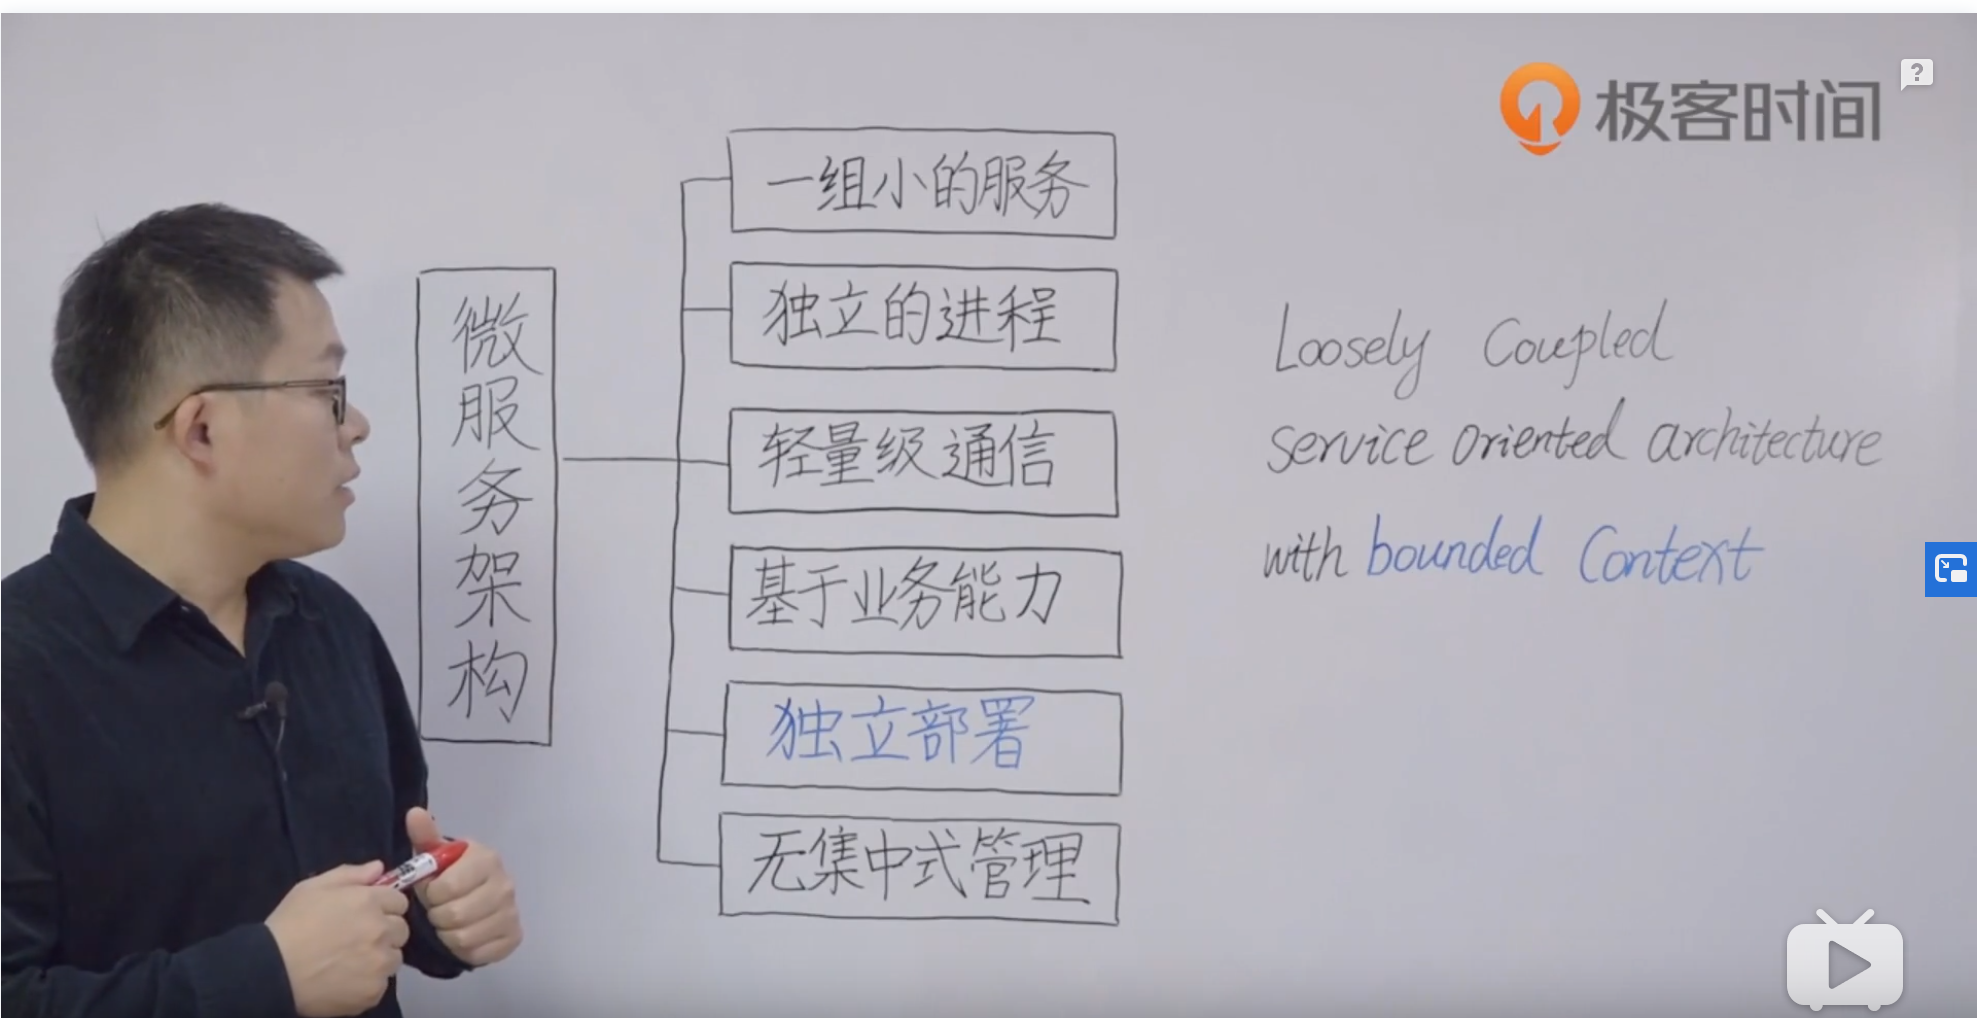 极客时间
?
微服务架构
一组小的服务
独立的进程
轻量级通信
基于业务能力
独立部署
无集中式管理
Loosely Coupled
service oriented architecture
with bounded Context